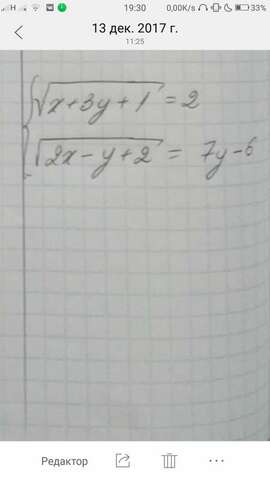 H 19:30 0,00K/s 33%
13 дек. 2017 г.
11:25
√(x+3y+1) = 2
√(2x-y+2) = 7y-6
Редактор